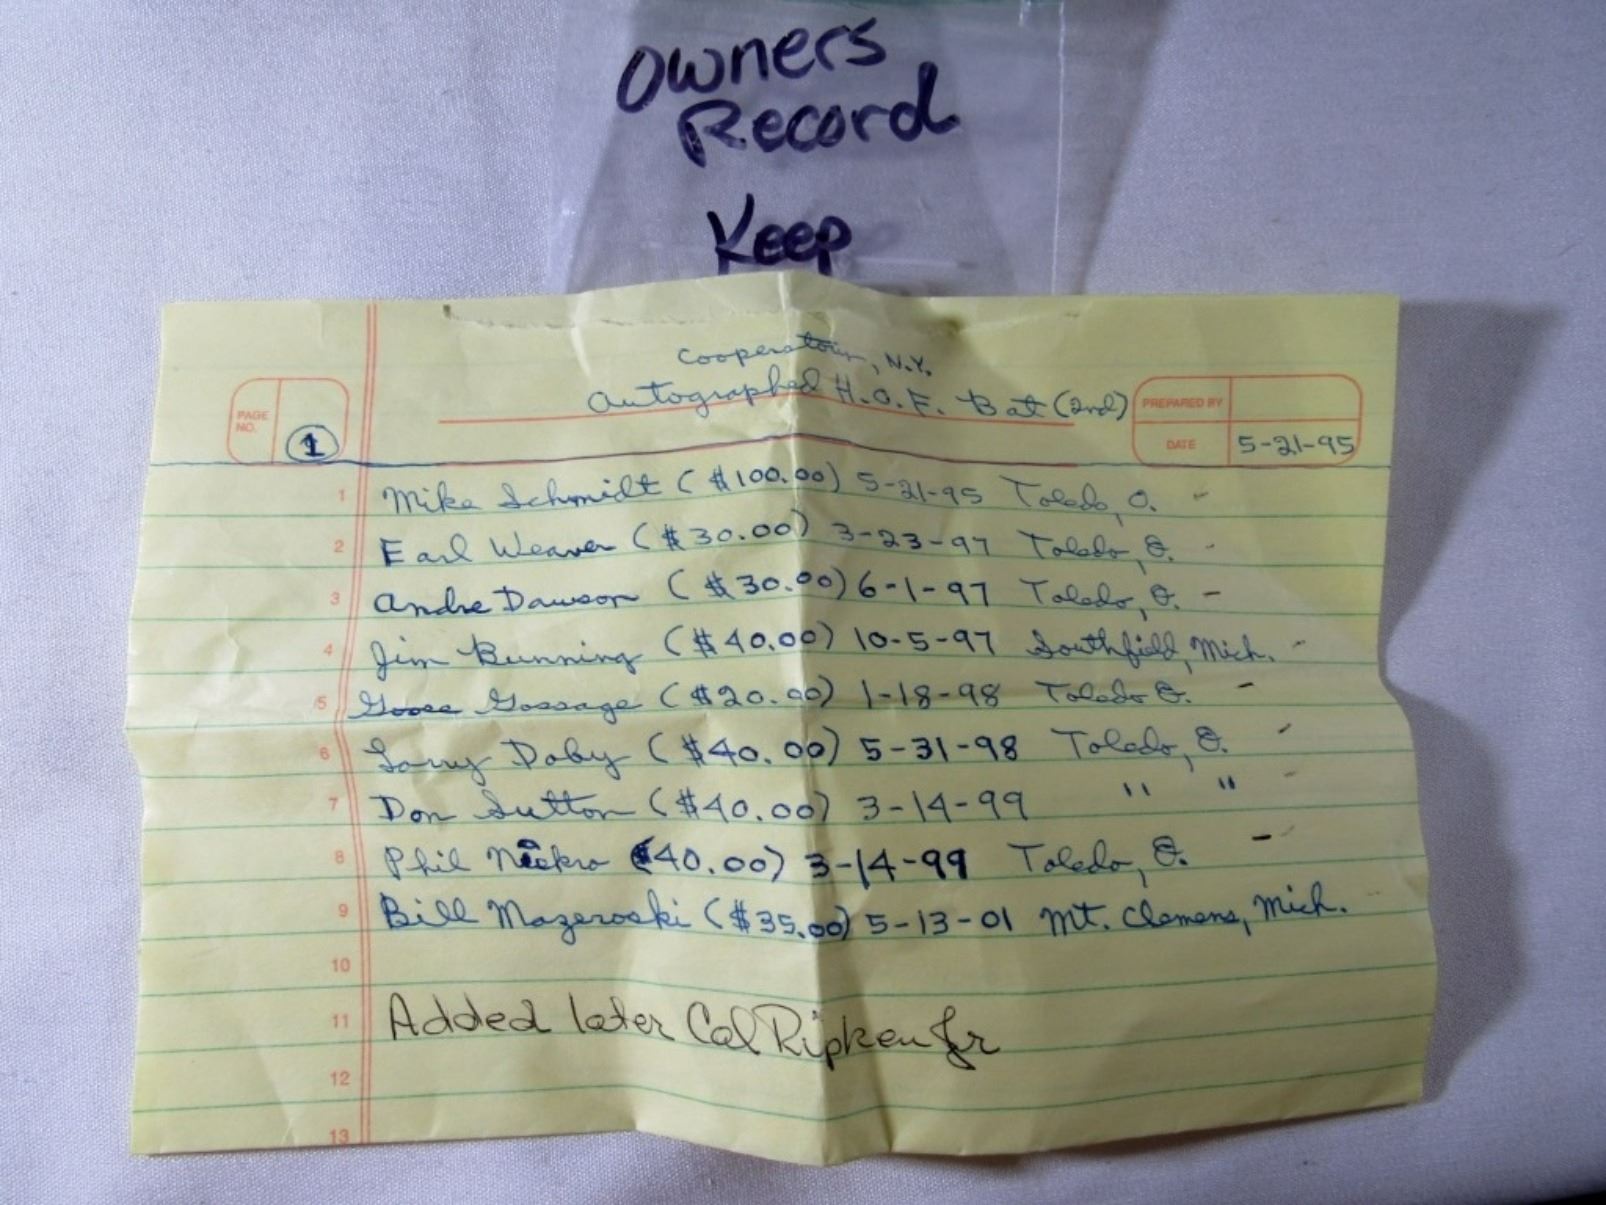 Owners
Record
Keep
Cooperstown, N.Y.
Autographed H.O.F. Bat (2nd)
PAGE NO. 1
PREPARED BY
DATE 5-21-95
1 Mike Schmidt ($100.00) 5-21-95 Toledo, O. -
2 Earl Weaver ($30.00) 3-23-97 Toledo, O. -
3 Andre Dawson ($30.00) 6-1-97 Toledo, O. -
4 Jim Bunning ($40.00) 10-5-97 Southfield, Mich. -
5 Goose Gossage ($20.00) 1-18-98 Toledo O. -
6 Larry Doby ($40.00) 5-31-98 Toledo, O. -
7 Don Sutton ($40.00) 3-14-99 " " -
8 Phil Niekro ($40.00) 3-14-99 Toledo, O. -
9 Bill Mazeroski ($35.00) 5-13-01 Mt. Clemens, Mich.
10
11 Added later Cal Ripken Jr
12
13